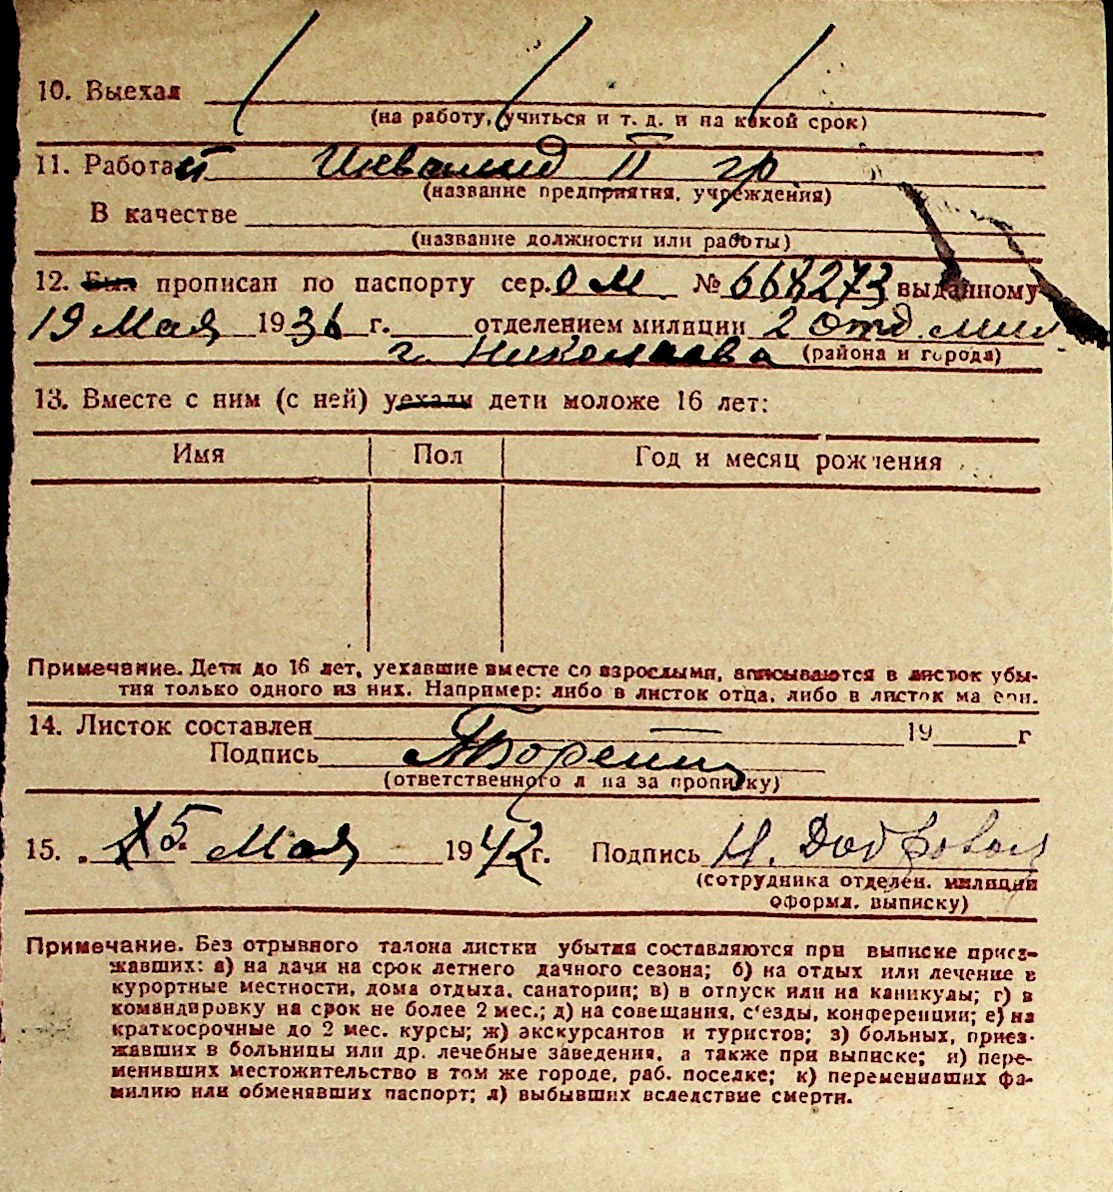 10. Выехал
(на работу, учиться и т. д. и на какой срок)
11. Работает Инвалид II гр
(название предприятия, учреждения)
В качестве
(название должности или работы)
12. Был прописан по паспорту сер. ОМ № 668273 выданному
19 Мая 1936 г. отделением милиции 2 отд. мил
г. Николаева (района и города)
13. Вместе с ним (с ней) уехали дети моложе 16 лет:
Имя Пол Год и месяц рождения
Примечание. Дети до 16 лет, уехавшие вместе со взрослыми, вписываются в листок убы-
тия только одного из них. Например: либо в листок отца, либо в листок матери.
14. Листок составлен 19 г
Подпись
(ответственного лица за прописку)
15. „ 5. Мая 1942 г. Подпись Н.
(сотрудника отделен. милиции
оформл. выписку)
Примечание. Без отрывного талона листки убытия составляются при выписке приез-
жавших: а) на дачи на срок летнего дачного сезона; б) на отдых или лечение в
курортные местности, дома отдыха, санатории; в) в отпуск или на каникулы; г) в
командировку на срок не более 2 мес.; д) на совещания, с'езды, конференции; е) на
краткосрочные до 2 мес. курсы; ж) экскурсантов и туристов; з) больных, приез-
жавших в больницы или др. лечебные заведения, а также при выписке; и) пере-
менивших местожительство в том же городе, раб. поселке; к) переменивших фа-
милию или обменявших паспорт; л) выбывших вследствие смерти.